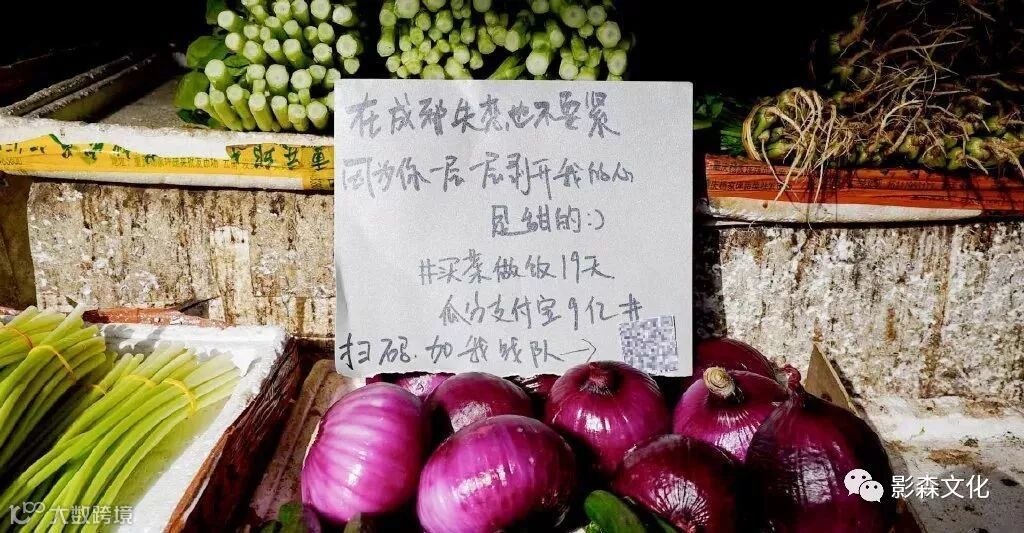 在成都失恋也不要紧
因为你一层一层剥开我的心
是甜的:)
#买菜做饭19天
瓜分支付宝9亿#
扫码.加我战队→
影森文化
大数跨境